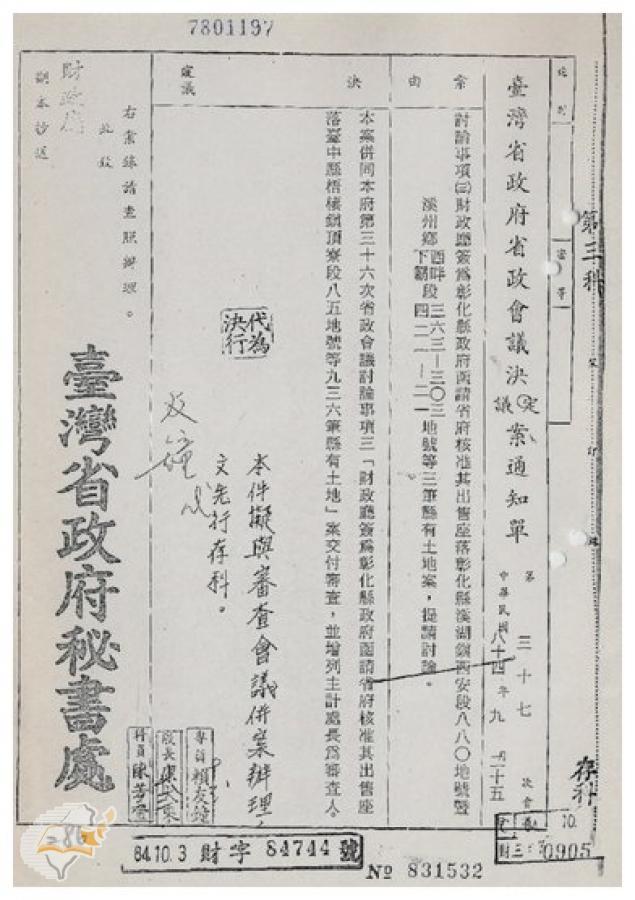 7801197
第三科
臺灣省政府省政會議決定案通知單
議
第三十七次會議
中華民國八十四年九月二十五
案由
討論事項㈢財政廳簽為彰化縣政府函請省府核准其出售座落彰化縣溪湖鎮西安段八八〇地號暨
溪州鄉西畔段三六三—三〇三地號等三筆縣有土地案，提請討論。
下霸段四二一—二一
決
定議
本案併同本府第三十六次省政會議討論事項三「財政廳簽為彰化縣政府函請省府核准其出售座
落臺中縣梧棲鎮頂寮段八五地號等九三六筆縣有土地」案交付審查，並增列主計處長為審查人。
代為
決行
本件擬與審查會議併案辦理，
文先行存科。
右案錄請查照辦理。
此致
財政廳
副本抄送
臺灣省政府秘書處
專員賴友鐘
股長
科員
存科
84.10.3 財字 84744 號
No 831532
財三
0905
10.